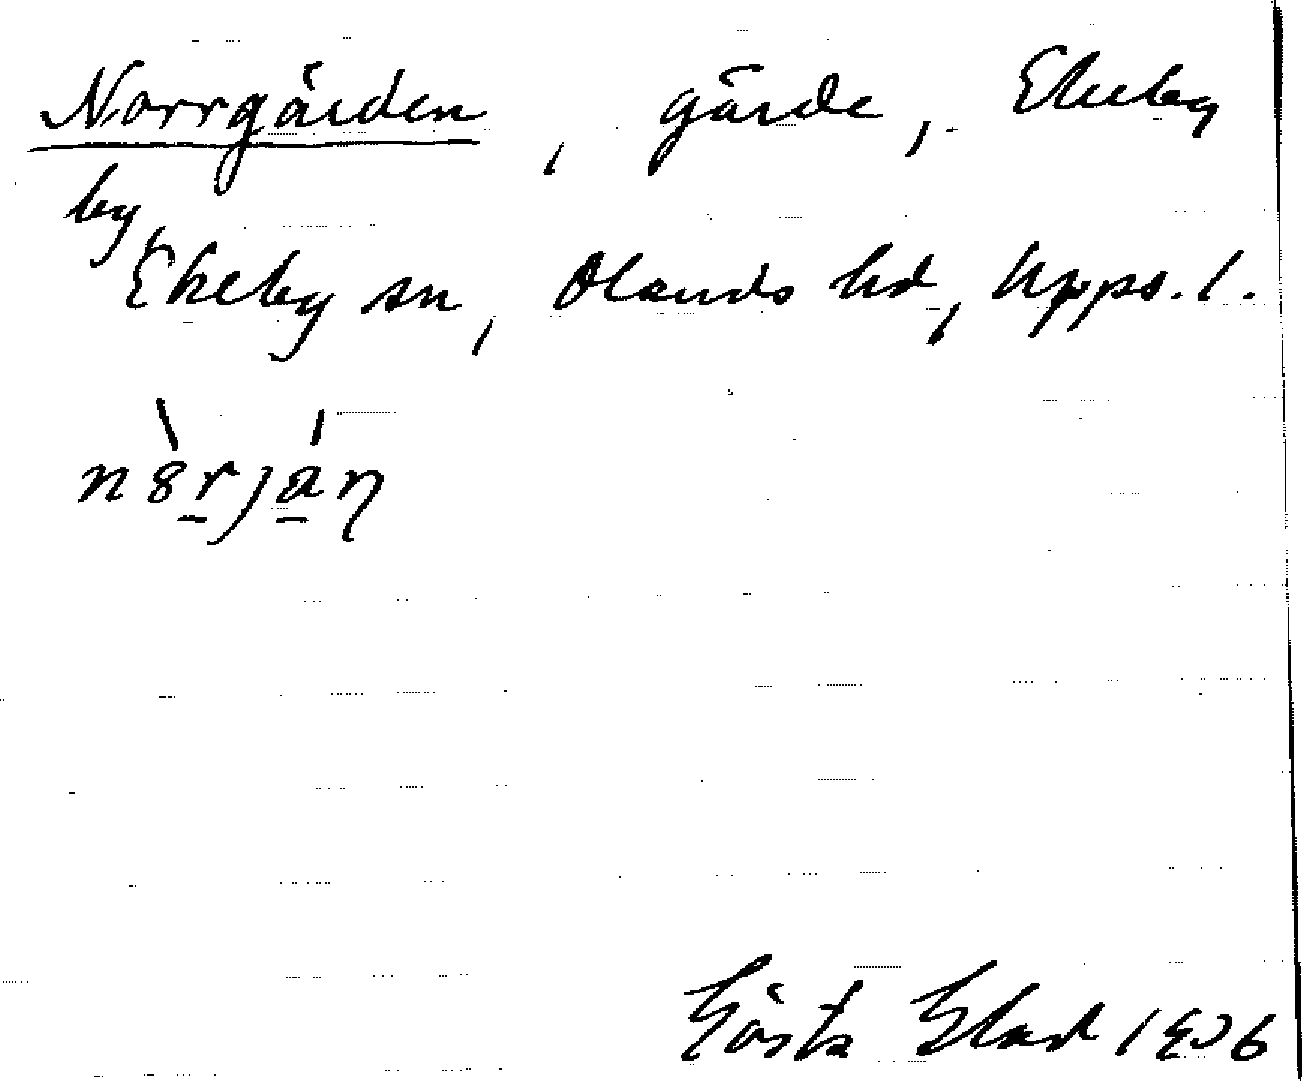 Norrgården, gärde, Ekeby
by,
Ekeby sn, Olands hd, Upps. l.
Gösta Blad 1936